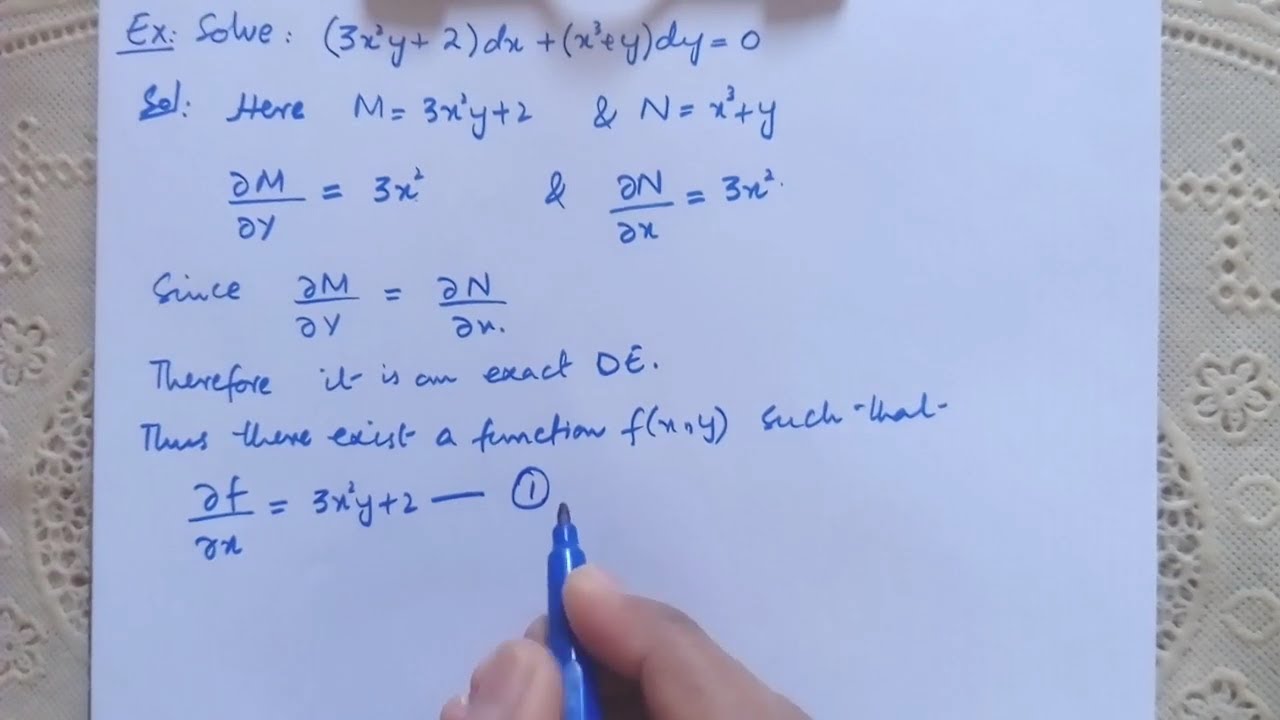 Ex: Solve: (3x²y + 2)dx + (x³+y)dy = 0
Sol: Here M = 3x²y+2 & N = x³+y
∂M/∂y = 3x² & ∂N/∂x = 3x².
Since ∂M/∂y = ∂N/∂x.
Therefore it is an exact DE.
Thus there exist a function f(x,y) such that
∂f/∂x = 3x²y+2 — ①